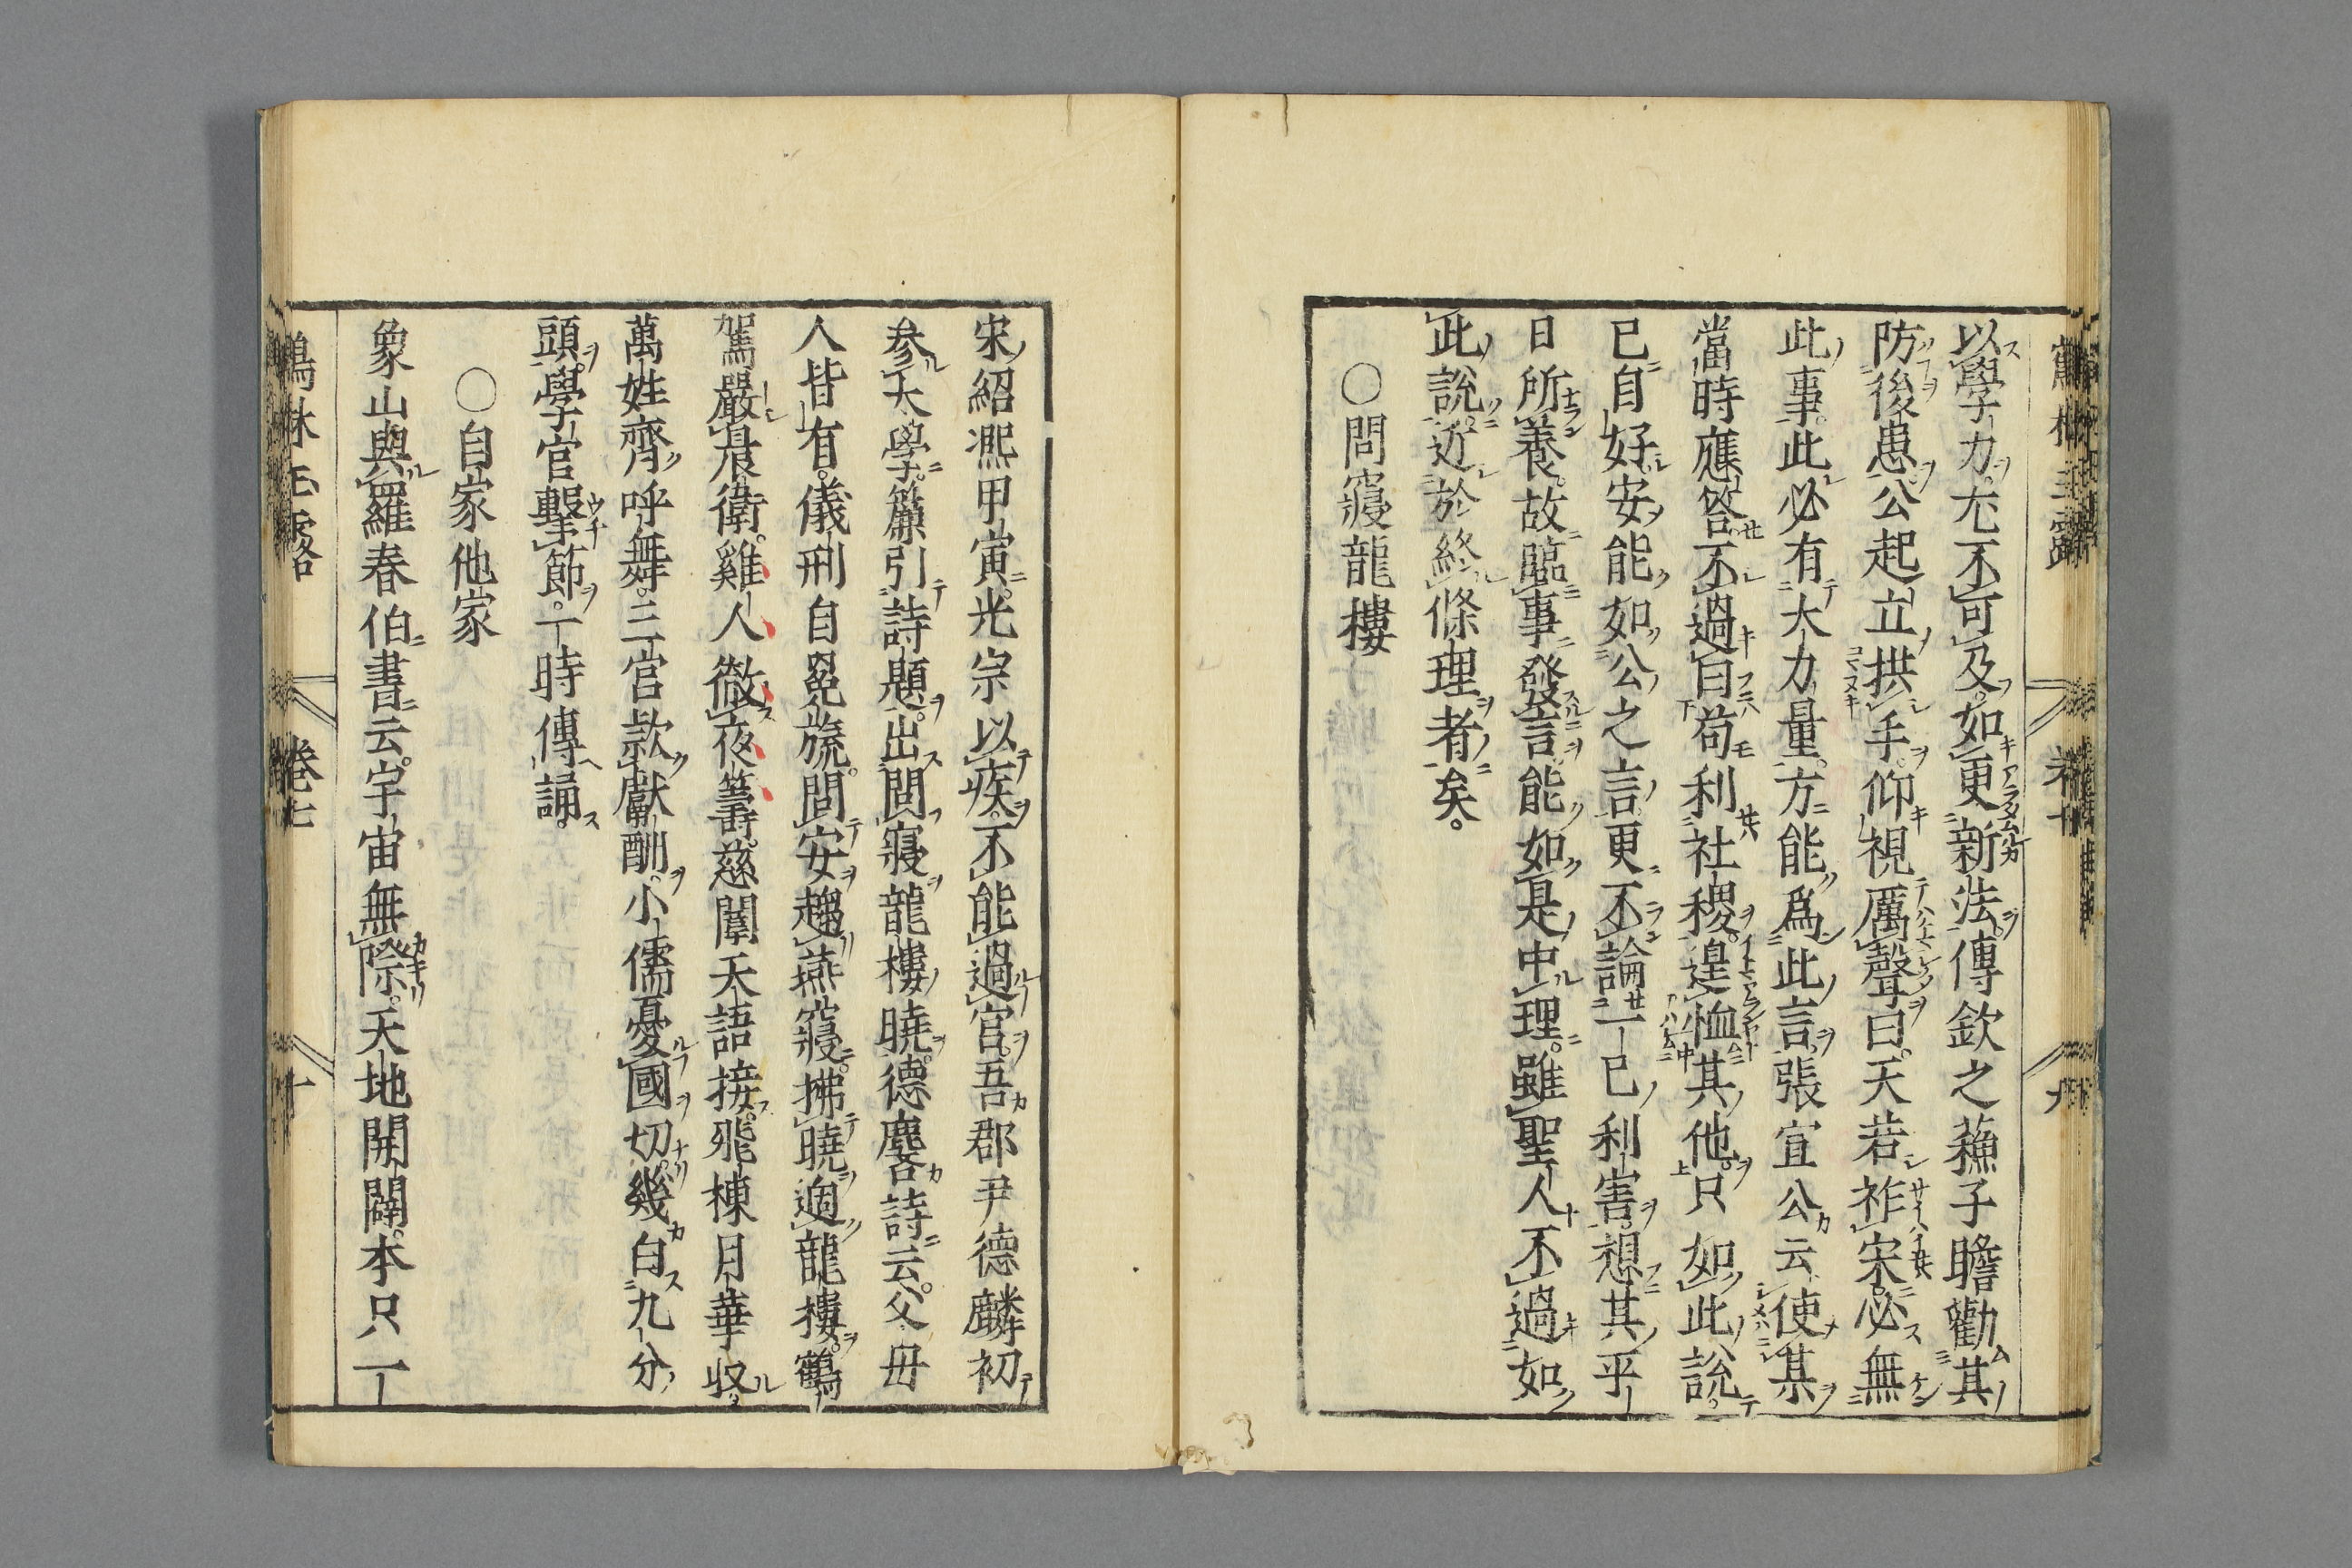 以學力尤不可及如更新法傳欽之蘓子瞻勸其
防後患公起立拱手仰視厲聲曰天若祚宋必無
此事此必有大力量方能爲此言張宜公云使某
當時應答不過曰苟利社稷遑恤其他只如此說
已自好安能如公之言更不論一己利害想其平
日所養故臨事發言能如是中理雖聖人不過如
此說近於終條理者矣。
〇問寢龍樓
宋紹凞甲寅光宗以疾不能過宮吾郡尹德麟初
參大學簾引詩題出問寢龍樓曉德麐詩云父母
人皆有儀刑自冕旒問安趨燕寢拂曉過龍樓鶴
駕嚴晨衛雞人徹夜籌慈闈天語接飛棟月華収
萬姓齊呼舞三宮款獻酬小儒憂國切幾白九分
頭學官擊節一時傳誦。
〇自家他家
象山與羅春伯書云宇宙無際天地開闢本只一
鶴林玉露 卷七 十